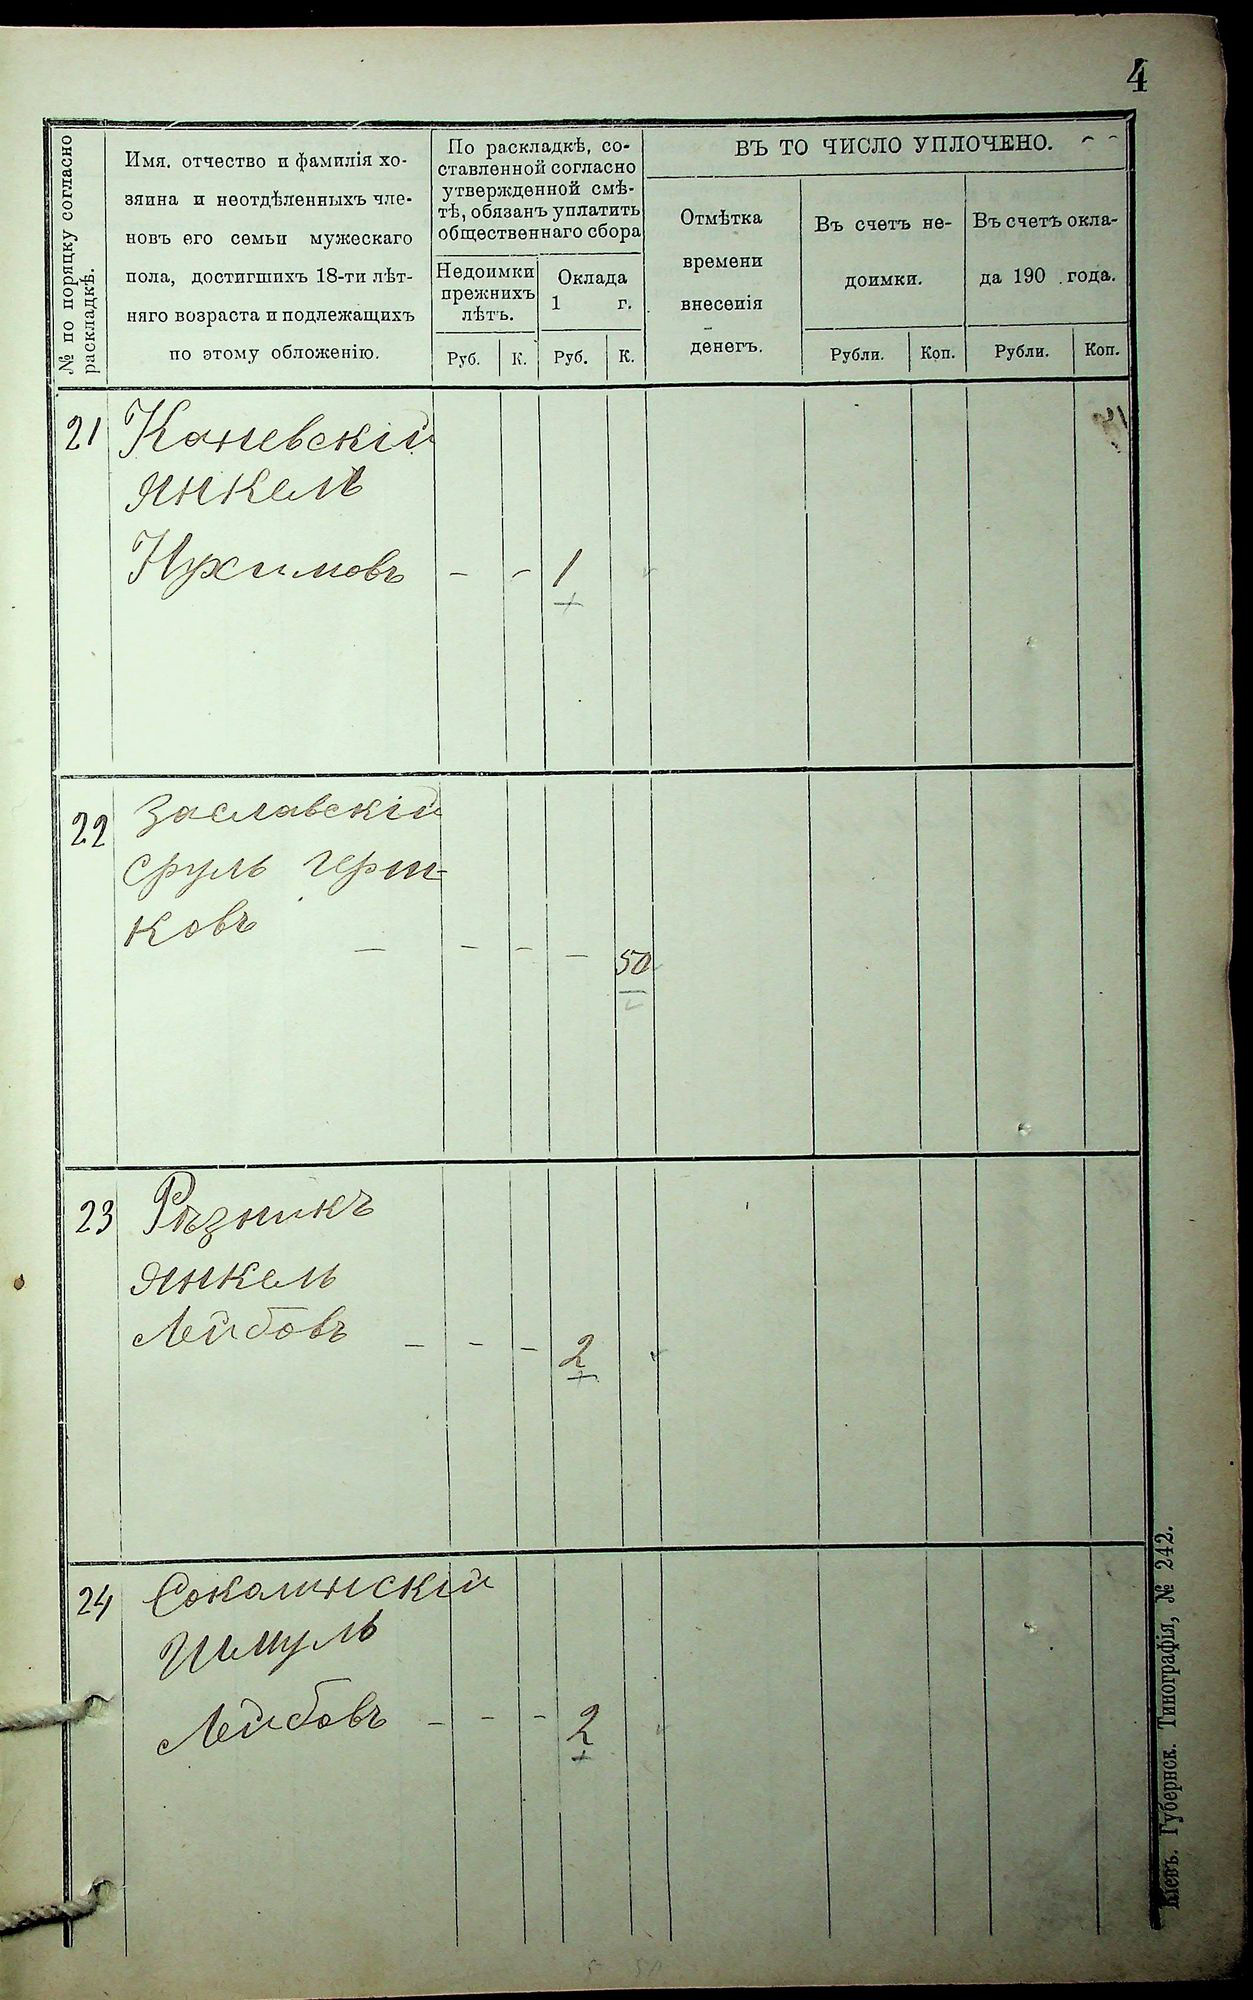 4
№ по порядку согласно
раскладкѣ.
Имя, отчество и фамилія хо-
зяина и неотдѣленныхъ чле-
новъ его семьи мужескаго
пола, достигшихъ 18-ти лѣт-
няго возраста и подлежащихъ
по этому обложенію.
По раскладкѣ, со-
ставленной согласно
утвержденной смѣ-
тѣ, обязанъ уплатить
общественнаго сбора
Недоимки
прежнихъ
лѣтъ.
Руб. К.
Оклада
1 г.
Руб. К.
ВЪ ТО ЧИСЛО УПЛОЧЕНО.
Отмѣтка
времени
внесенія
денегъ.
Въ счетъ не-
доимки.
Рубли. Коп.
Въ счетъ окла-
да 190 года.
Рубли. Коп.
21 Каневскій
Янкель
Нухимовъ - - 1
22 Заславскій
Сруль Герш-
ковъ - - - - 50
23 Рѣзникъ
Янкель
Лейбовъ - - - 2
24 Соколинскій
Шмуль
Лейбовъ - - - 2
Кіевъ. Губернск. Типографія, № 242.